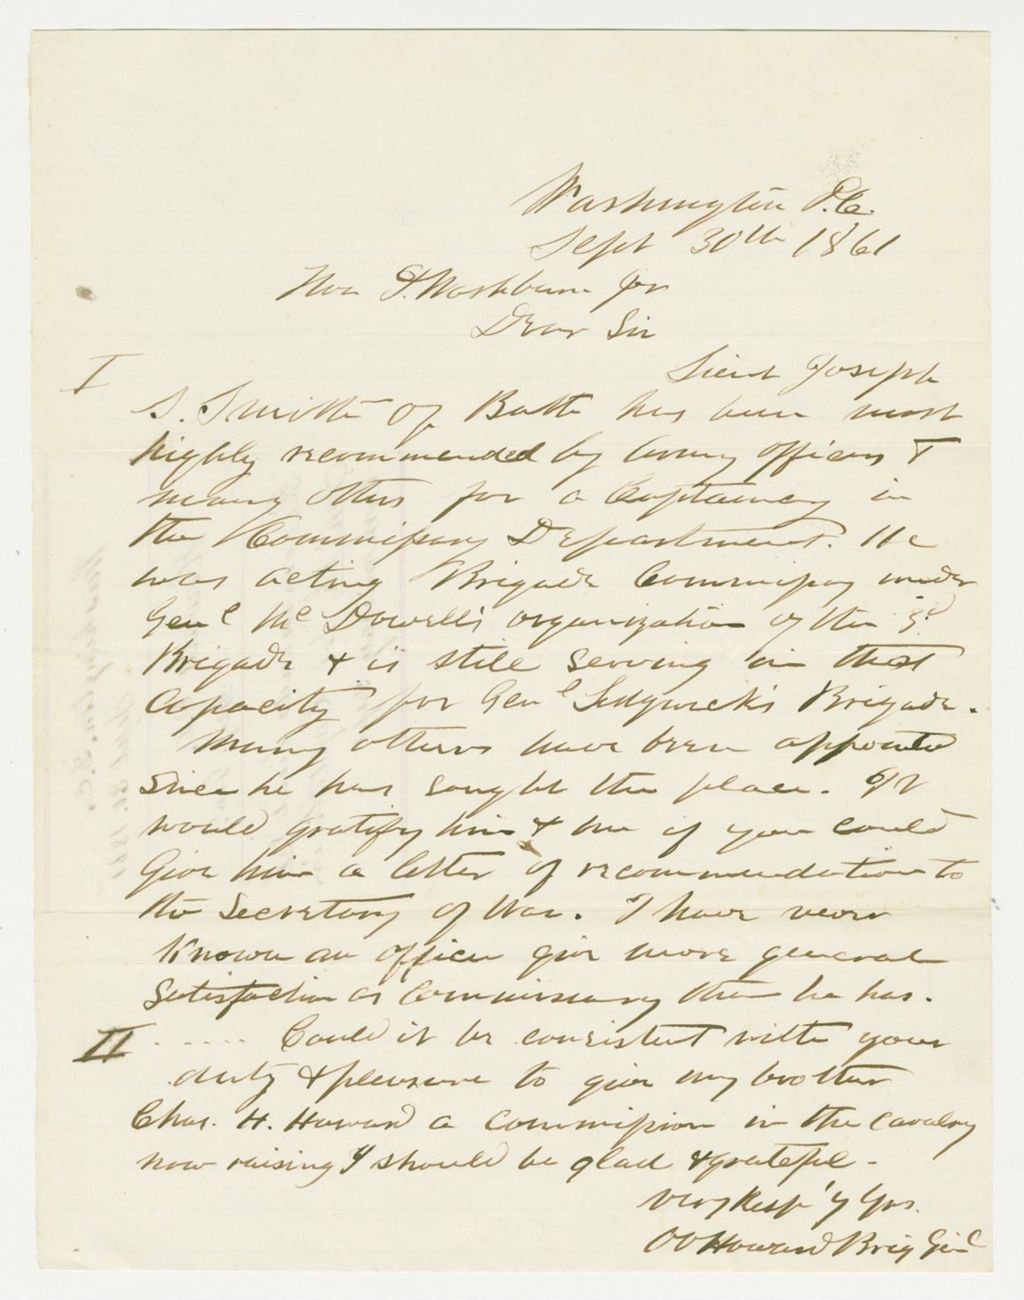 Washington D.C.
Sept 30th 1861
Hon I. Washburn Jr
Dear Sir
I Lieut Joseph
S. Smith of Bath has been most
highly recommended by Army Officers &
many others for a Captaincy in
the Commissary Department. He
was acting Brigade Commissary under
Genl McDowell's organization of the 3d
Brigade & is still serving in that
Capacity for Genl Sedgwick's Brigade.
Many others have been appointed
since he has sought the place. It
would gratify him & me if you could
give him a letter of recommendation to
the Secretary of War. I have never
known an officer give more general
satisfaction as commissary than he has.
II ..... Could it be consistent with your
duty & pleasure to give my brother
Chas. H. Howard a commission in the cavalry
now raising I should be glad & grateful.
Very Resp'y Yrs.
O O Howard Brig Genl